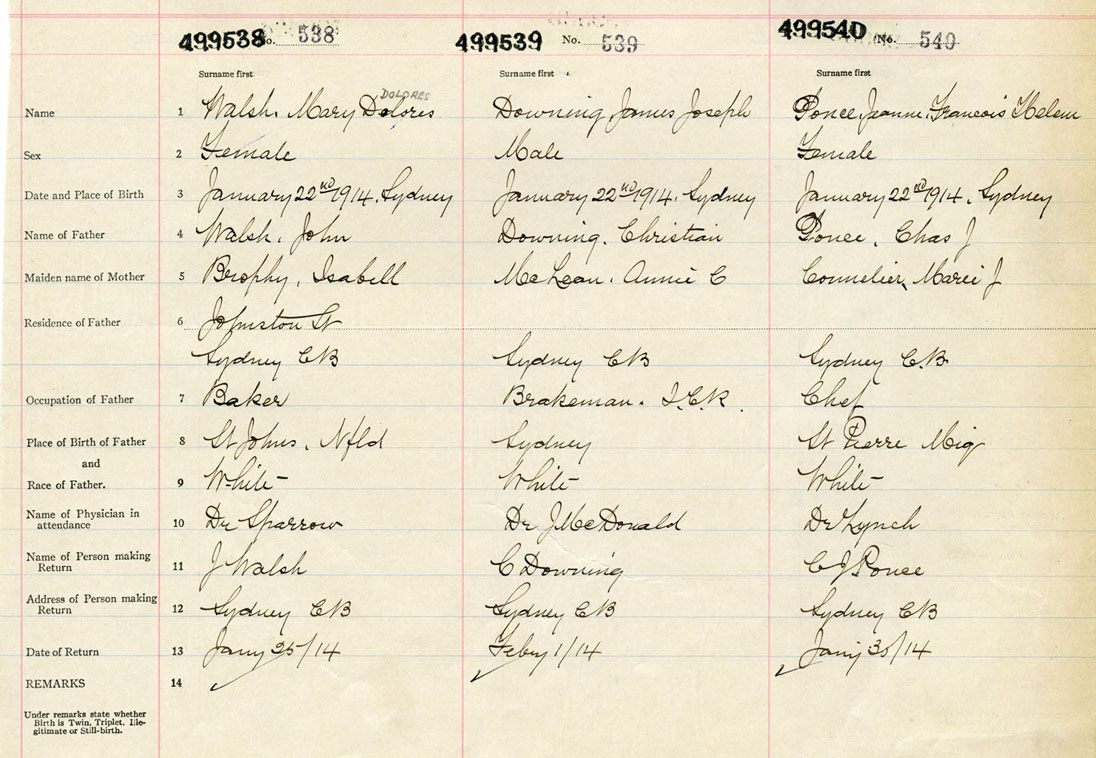 499538 No. 538 499539 No. 539 499540 No. 540
Surname first Surname first Surname first
DOLORES
Name 1 Walsh, Mary Dolores Downing, James Joseph Ponce, Jeanne, Francois Helem
Sex 2 Female Male Female
Date and Place of Birth 3 January 22nd 1914, Sydney January 22nd 1914, Sydney January 22nd 1914, Sydney
Name of Father 4 Walsh, John Downing, Christian Ponce, Chas J
Maiden name of Mother 5 Brophy, Isabell McLean, Annie C Marei J
Residence of Father 6 Johnston St
Sydney CB Sydney CB Sydney C.B.
Occupation of Father 7 Baker Brakeman. I.C.R. Chef
Place of Birth of Father 8 St Johns, Nfld Sydney St Pierre Miq
and
Race of Father. 9 White White White
Name of Physician in
attendance 10 Dr Sparrow Dr J McDonald Dr Lynch
Name of Person making
Return 11 J Walsh C Downing C J Ponce
Address of Person making
Return 12 Sydney CB Sydney CB Sydney CB
Date of Return 13 Jany 25/14 Feby 1/14 Jany 30/14
REMARKS 14
Under remarks state whether
Birth is Twin, Triplet, Ille-
gitimate or Still-birth.